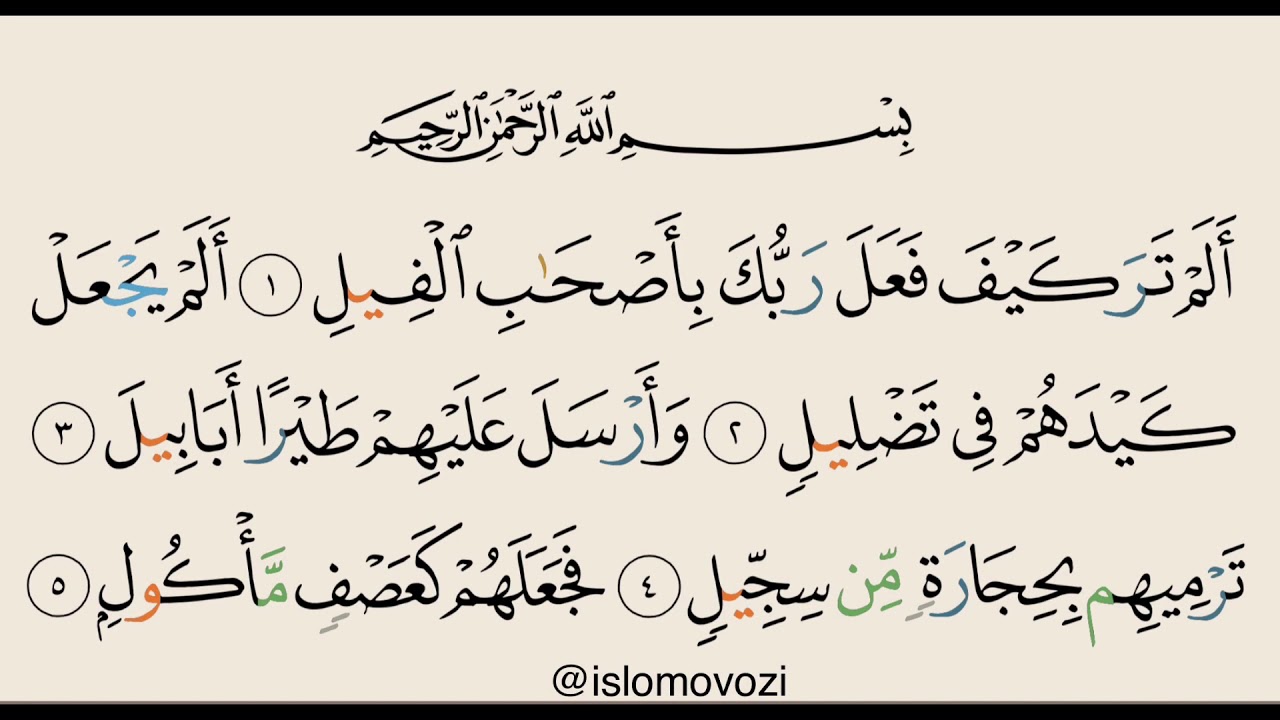 بِسْمِ ٱللَّهِ ٱلرَّحْمَٰنِ ٱلرَّحِيمِ
أَلَمْ تَرَ كَيْفَ فَعَلَ رَبُّكَ بِأَصْحَٰبِ ٱلْفِيلِ ١ أَلَمْ يَجْعَلْ
كَيْدَهُمْ فِى تَضْلِيلٍ ٢ وَأَرْسَلَ عَلَيْهِمْ طَيْرًا أَبَابِيلَ ٣
تَرْمِيهِم بِحِجَارَةٍ مِّن سِجِّيلٍ ٤ فَجَعَلَهُمْ كَعَصْفٍ مَّأْكُولٍۭ ٥
@islomovozi